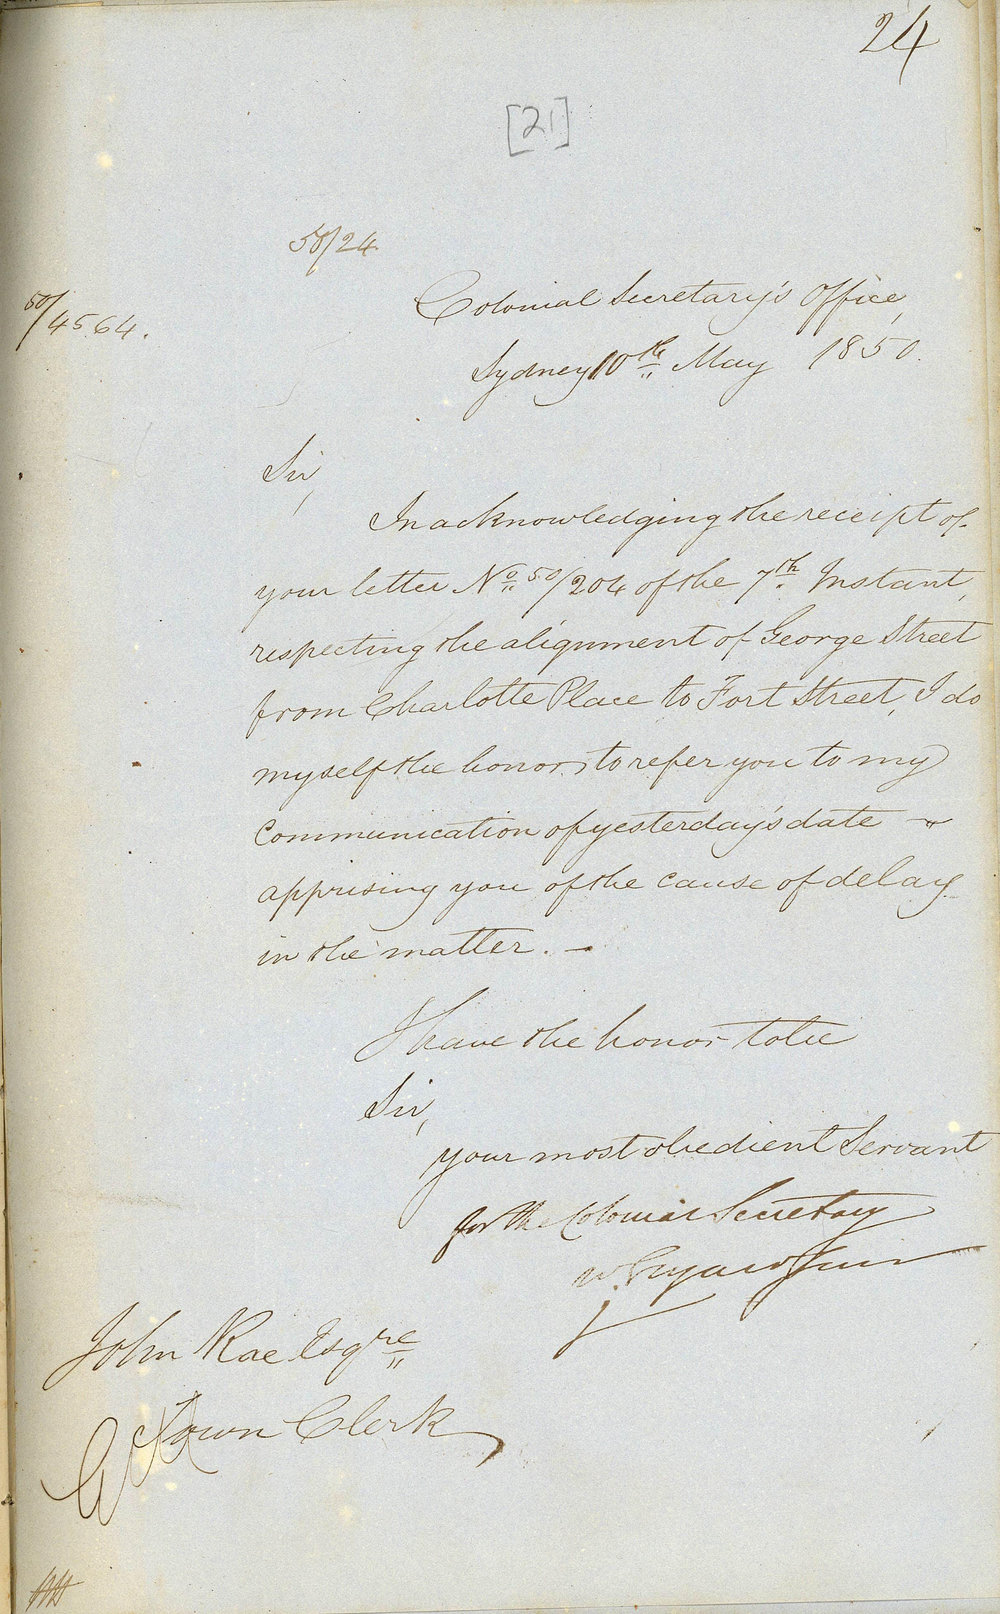 24
[21]
50/24
50/4564.
Colonial Secretary's Office,
Sydney 10th May 1850.
Sir,
In acknowledging the receipt of
your letter No 50/204 of the 7th Instant,
respecting the alignment of George Street
from Charlotte Place to Fort Street, I do
myself the honor, to refer you to my
communication of yesterday's date
apprising you of the cause of delay
in the matter. —
I have the honor to be
Sir,
your most obedient Servant
for the Colonial Secretary
W.
John Rae Esqre
Town Clerk